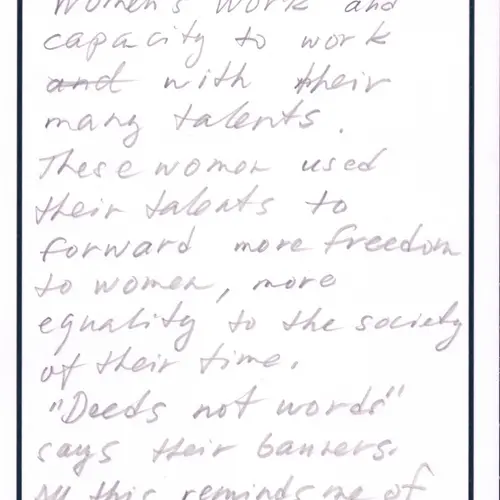 Women's work and
capacity to work
~~and~~ with their
many talents.
These women used
their talents to
forward more freedom
to women, more
equality to the society
of their time.
"Deeds not words"
says their banners.
All this reminds me of